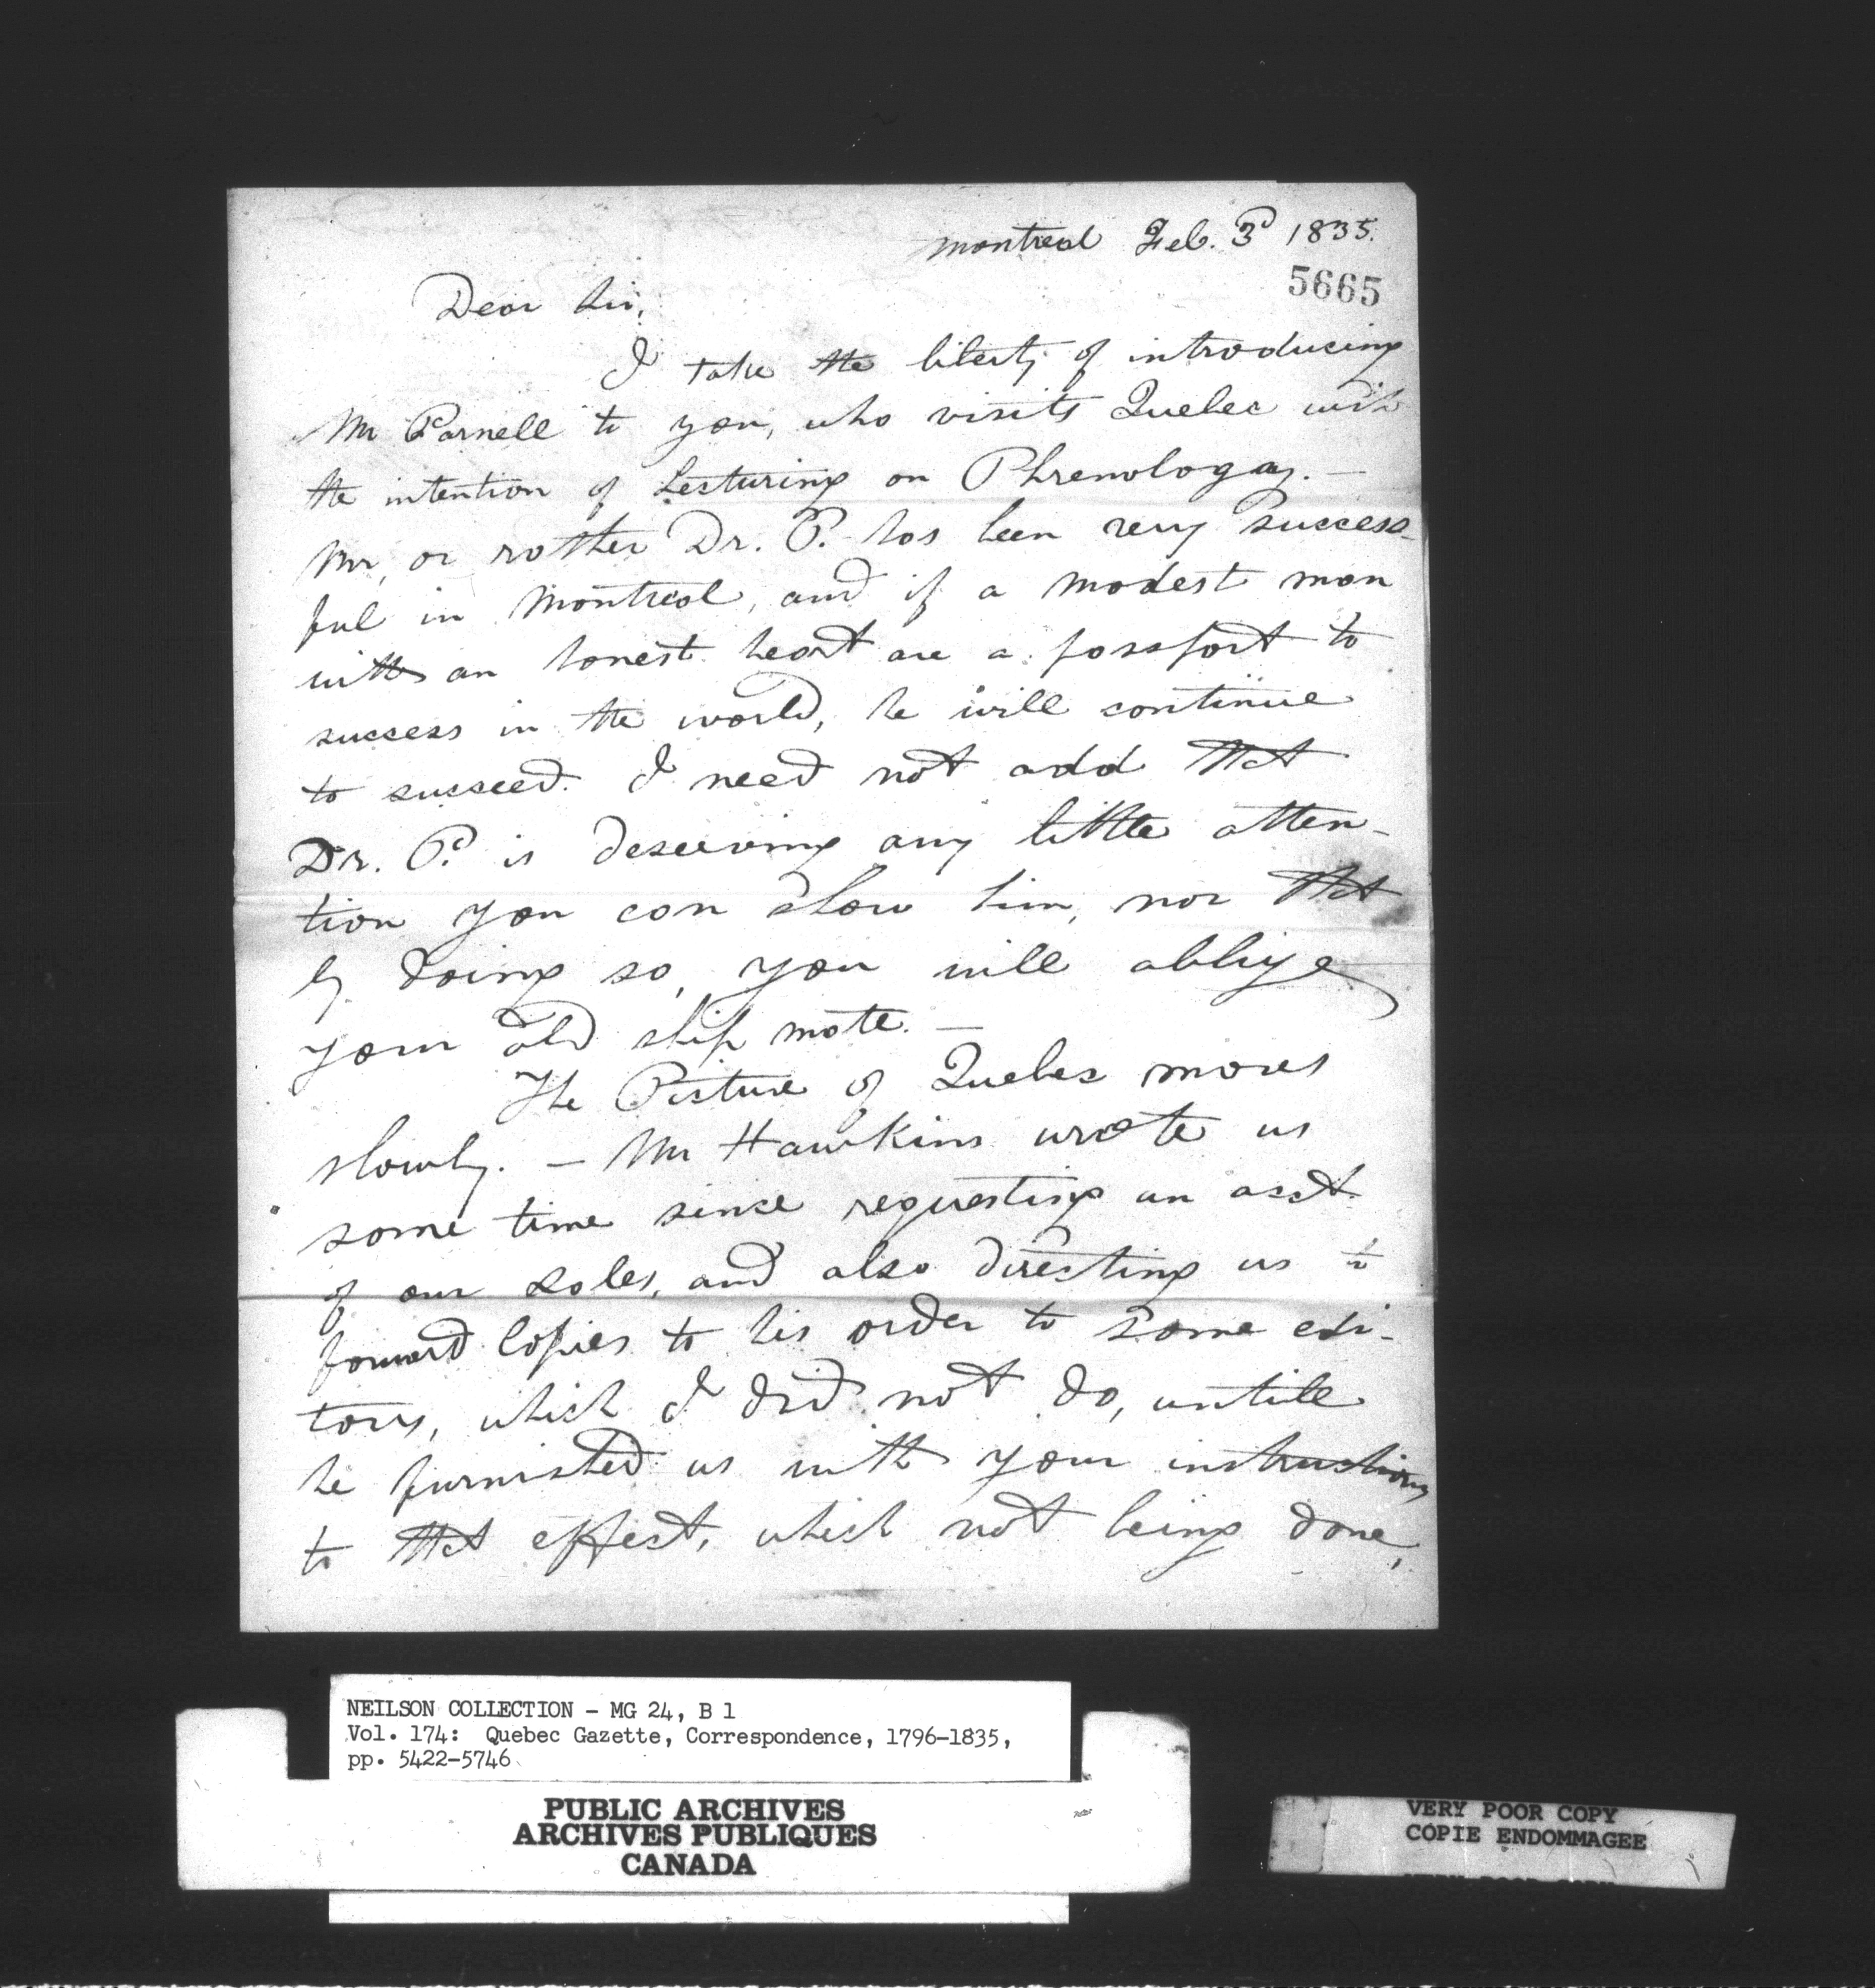 Montreal Feb. 3d 1835.
5665
Dear Sir,
I take the liberty of introducing
Mr Parnell to you, who visits Quebec with
the intention of Lecturing on Phrenology. —
Mr, or rather Dr. P. has been very success-
ful in Montreal, and if a modest man
with an honest heart are a passport to
success in the world, he will continue
to succeed. I need not add that
Dr. P. is deserving any little atten-
tion you can show him, nor that
by doing so, you will oblige
your old ship mate. —
The Picture of Quebec moves
slowly. — Mr Hawkins wrote us
some time since requesting an acct.
of our sales, and also directing us to
forward Copies to his order to some edi-
tors, which I did not do, untill
he furnished us with your instructions
to that effect, which not being done,
NEILSON COLLECTION - MG 24, B 1
Vol. 174: Quebec Gazette, Correspondence, 1796-1835,
pp. 5422-5746
PUBLIC ARCHIVES
ARCHIVES PUBLIQUES
CANADA
VERY POOR COPY
COPIE ENDOMMAGEE